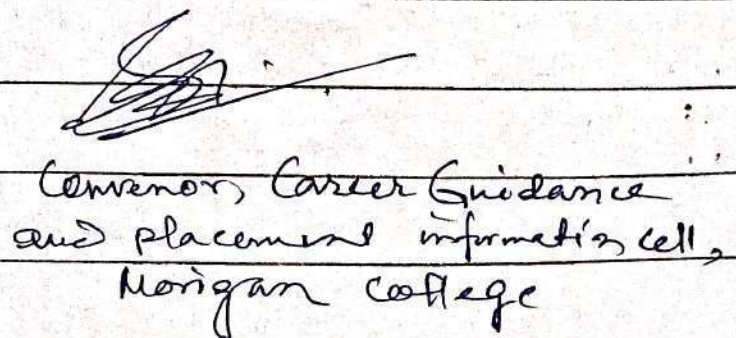 Convenor, Career Guidance
and placement information cell,
Morigaon College